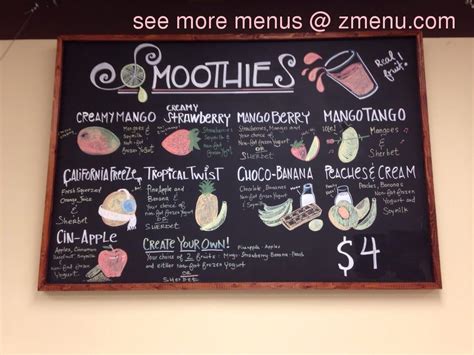 see more menus @ zmenu.com
SMOOTHIES
Real fruit!
CREAMY MANGO
Mangoes & Soymilk & Non-fat frozen Yogurt
CREAMY STRAWBERRY
Strawberries, Soymilk & Non-fat frozen Yogurt
MANGO BERRY
Strawberries, Mango and your choice of Non-fat frozen Yogurt
OR
SHERBET
MANGO TANGO
Mangoes & Sherbet
CALIFORNIA FREEZE
Fresh Squeezed Orange Juice & Sherbet
TROPICAL TWIST
Pineapple and Banana & Your choice of non-fat frozen Yogurt
OR
Sherbet
CHOCO-BANANA
Chocolate, Banana, Non-fat frozen Yogurt & Soymilk
PEACHES & CREAM
Peaches, Bananas Non-fat frozen Yogurt and Soymilk
CIN-APPLE
Apples, Cinnamon
Soymilk &
Non-fat frozen
Yogurt
CREATE YOUR OWN!
Your choice of 2 fruits: Mango Strawberry Banana Peach
Pineapple Apples
and either Non-fat frozen Yogurt
OR
SHERBET
$4